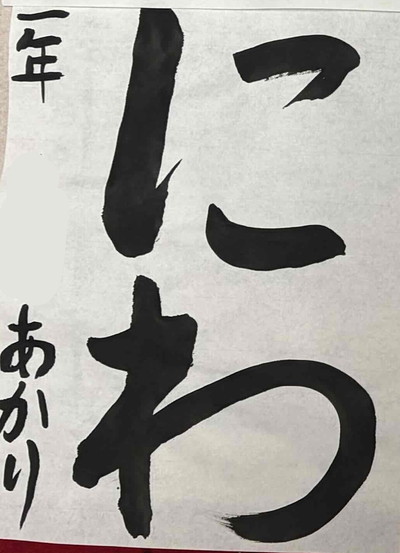 にわ
一年 あかり